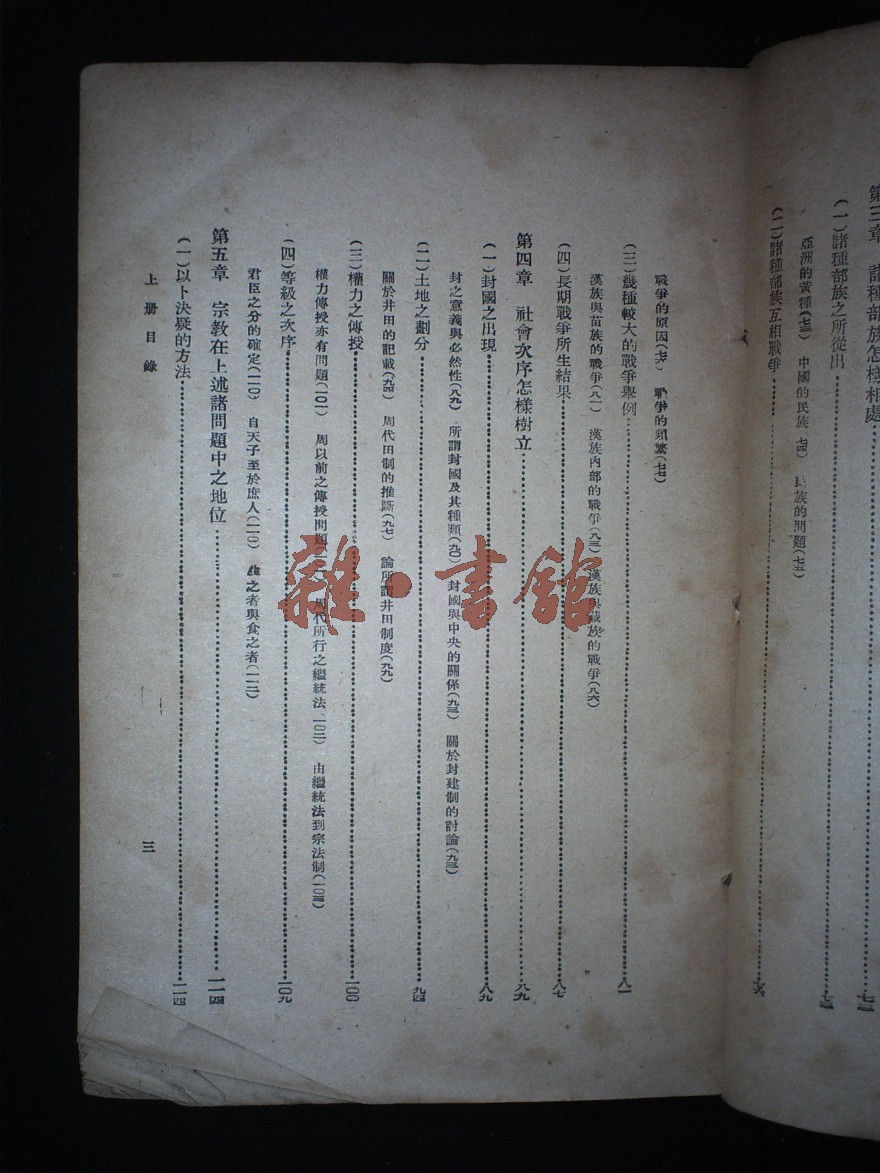 第三章　諸種部族怎樣相處……七三
（一）諸種部族之所從出……七三
亞洲的黃種（七三）　中國的民族（七四）　民族的問題（七五）
（二）諸種部族互相戰爭……七六
戰爭的原因（七六）　戰爭的頻繁（七七）
（三）幾種較大的戰爭舉例……八一
漢族與苗族的戰爭（八一）　漢族內部的戰爭（八三）　漢族與藏族的戰爭（八六）
（四）長期戰爭所生結果……八七
第四章　社會次序怎樣樹立……八九
（一）封國之出現……八九
封之意義與必然性（八九）　所謂封國及其種類（九〇）　封國與中央的關係（九三）　關於封建制的討論（九三）
（二）土地之劃分……九四
關於井田的記載（九四）　周代田制的推斷（九七）　論所謂井田制度（九九）
（三）權力之傳授……一〇〇
權力傳授亦有問題（一〇一）　周以前之傳授問題　周代所行之繼統法（一〇二）　由繼統法到宗法制（一〇三）
（四）等級之次序……一〇九
君臣之分的確定（一一〇）　自天子至於庶人（一一〇）　食之者與食之者（一一二）
第五章　宗教在上述諸問題中之地位……一一四
（一）以卜決疑的方法……一一四
上册目錄
三
雜·書館